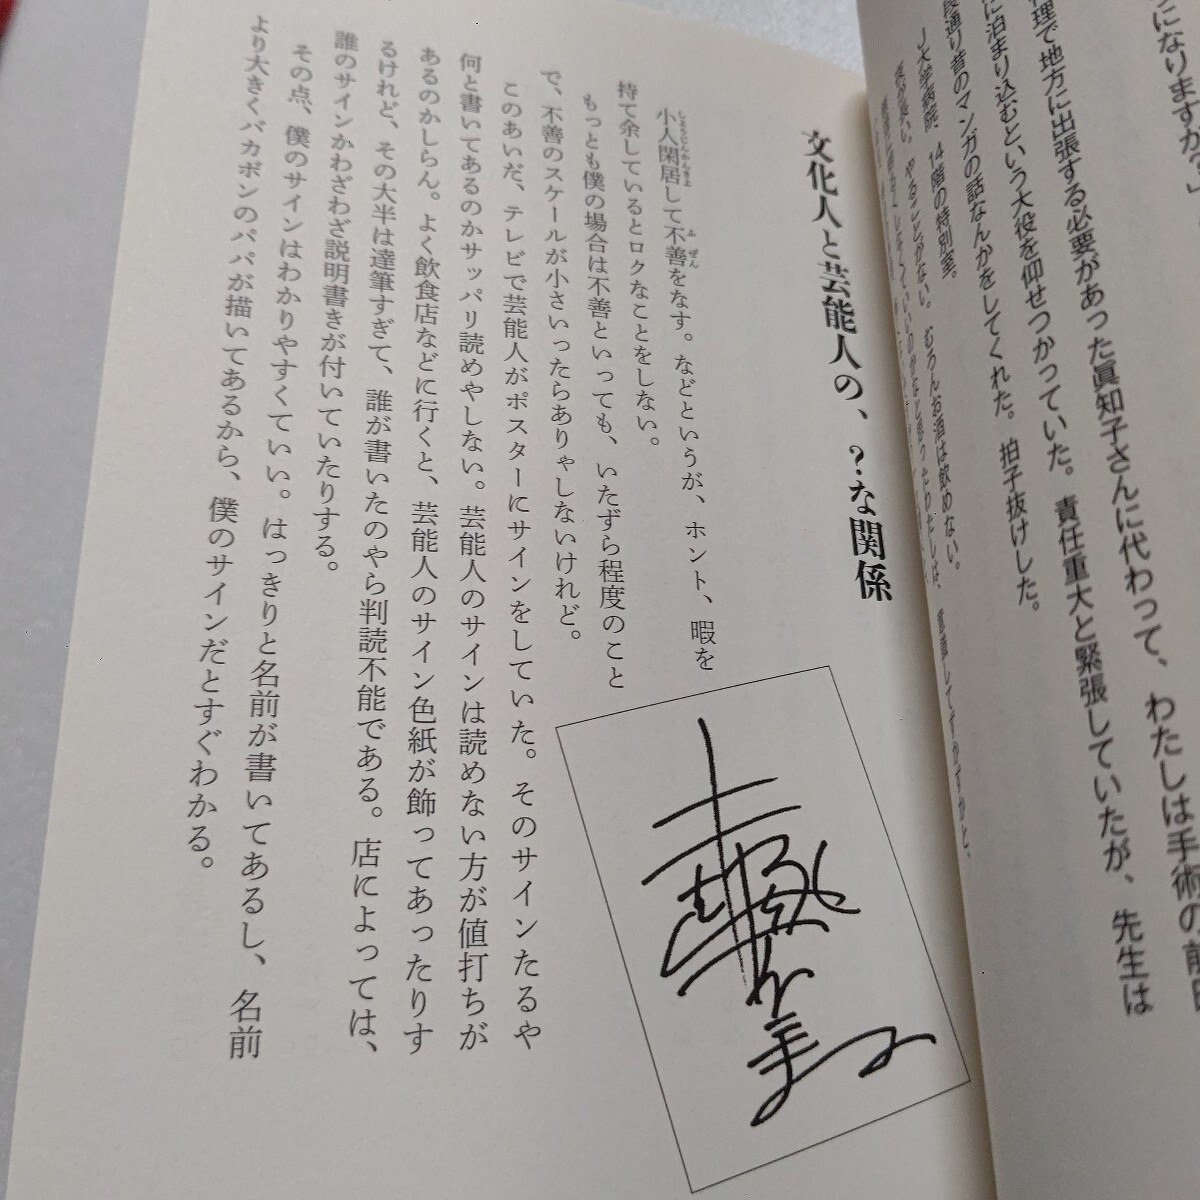 うになりますか？」
理で地方に出張する必要があった眞知子さんに代わって、わたしは手術の前日
に泊まり込むという大役を仰せつかっていた。責任重大と緊張していたが、先生は
段通り昔のマンガの話なんかをしてくれた。拍子抜けした。
J大学病院、14階の特別室。
夜が長い。やることがない。むろんお酒は飲めない。
文化人と芸能人の、？な関係
小人閑居して不善をなす。などというが、ホント、暇を
しょうじんかんきょ
ふぜん
持て余しているとロクなことをしない。
もっとも僕の場合は不善といっても、いたずら程度のこと
で、不善のスケールが小さいったらありゃしないけれど。
このあいだ、テレビで芸能人がポスターにサインをしていた。そのサインたるや
何と書いてあるのかサッパリ読めやしない。芸能人のサインは読めない方が値打ちが
あるのかしらん。よく飲食店などに行くと、芸能人のサイン色紙が飾ってあったりす
るけれど、その大半は達筆すぎて、誰が書いたのやら判読不能である。店によっては、
誰のサインかわざわざ説明書きが付いていたりする。
その点、僕のサインはわかりやすくていい。はっきりと名前が書いてあるし、名前
より大きくバカボンのパパが描いてあるから、僕のサインだとすぐわかる。